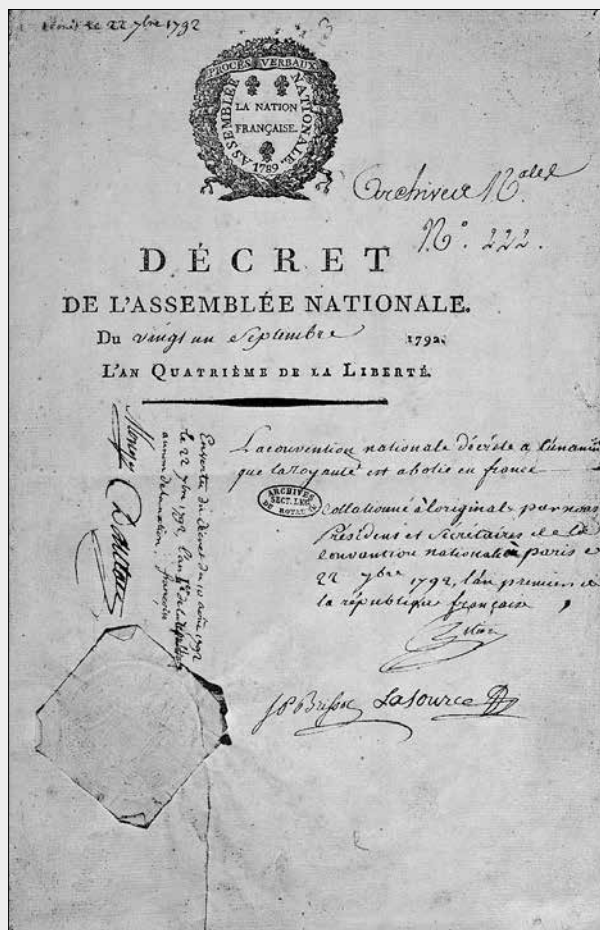 22 7bre 1792
PROCÈS VERBAUX
ASSEMBLÉE NATIONALE.
LA NATION
FRANÇAISE.
1789
Archives N.ales
N.° 222.
DÉCRET
DE L'ASSEMBLÉE NATIONALE.
Du vingt un Septembre 1792.
L'AN QUATRIÈME DE LA LIBERTÉ.
La convention nationale décrète a l'unanim
que la royauté est abolie en france
ARCHIVES
DU ROYAUME
Collationné à l'original par nous
Président et Secrétaires de la
Convention nationale à paris ce
22 7bre 1792, l'an premier de
la république françoise
J P Brissot Lasource
En vertu du décret du 10 août 1792
le 22 7bre 1792, l'an 1er de la république
au nom de la nation.
Monge Danton